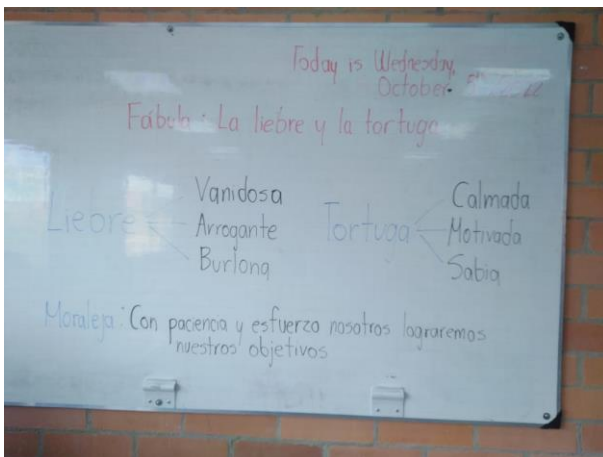 Today is Wednesday,
October
Fábula: La liebre y la tortuga
Liebre
Vanidosa
Arrogante
Burlona
Tortuga
Calmada
Motivada
Sabia
Moraleja: Con paciencia y esfuerzo nosotros lograremos
nuestros objetivos